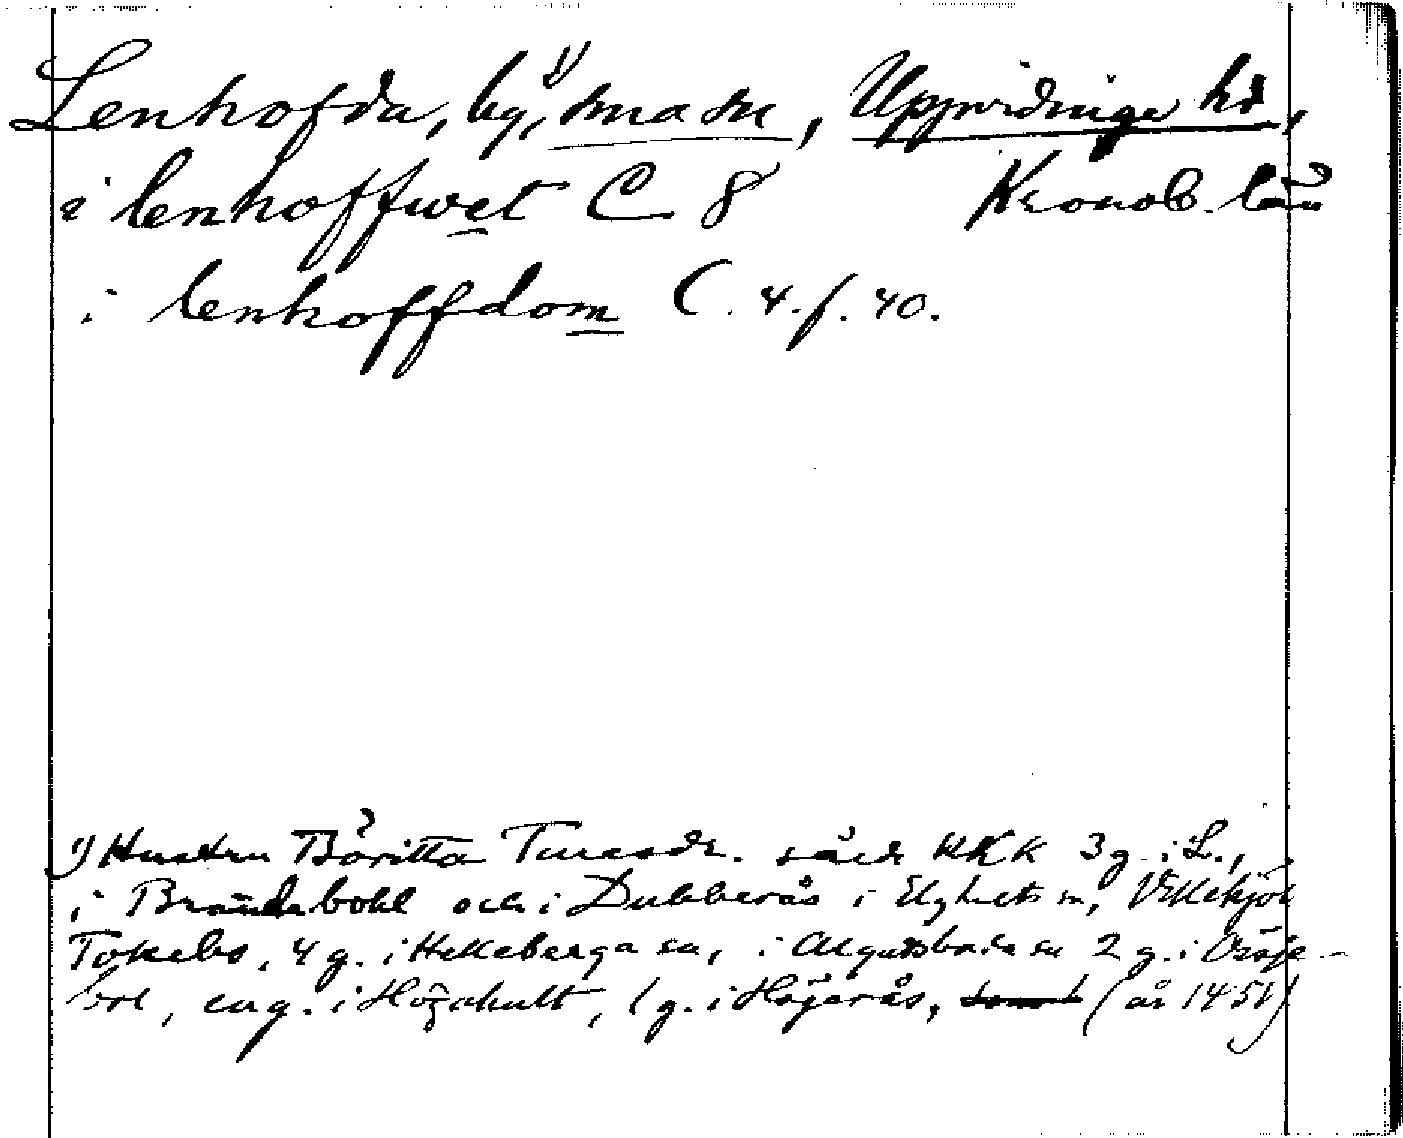 Lenhofda, by,¹⁾ sma sn, Uppvidinge hd,
i lenhoffwet C 8 Kronob. län
i lenhoffdom C. 4. f. 40.
1) Hustru Böritta Turesdr. säljer KKK 3 g. i L.,
i Brändabohl och i Dubberås i Elghults sn,
Tokebo, 4 g. i Helleberga sn, i Algutsboda sn 2 g. i
bol, en g. i Högahult, 1 g. i Höjerås, (år 1451)